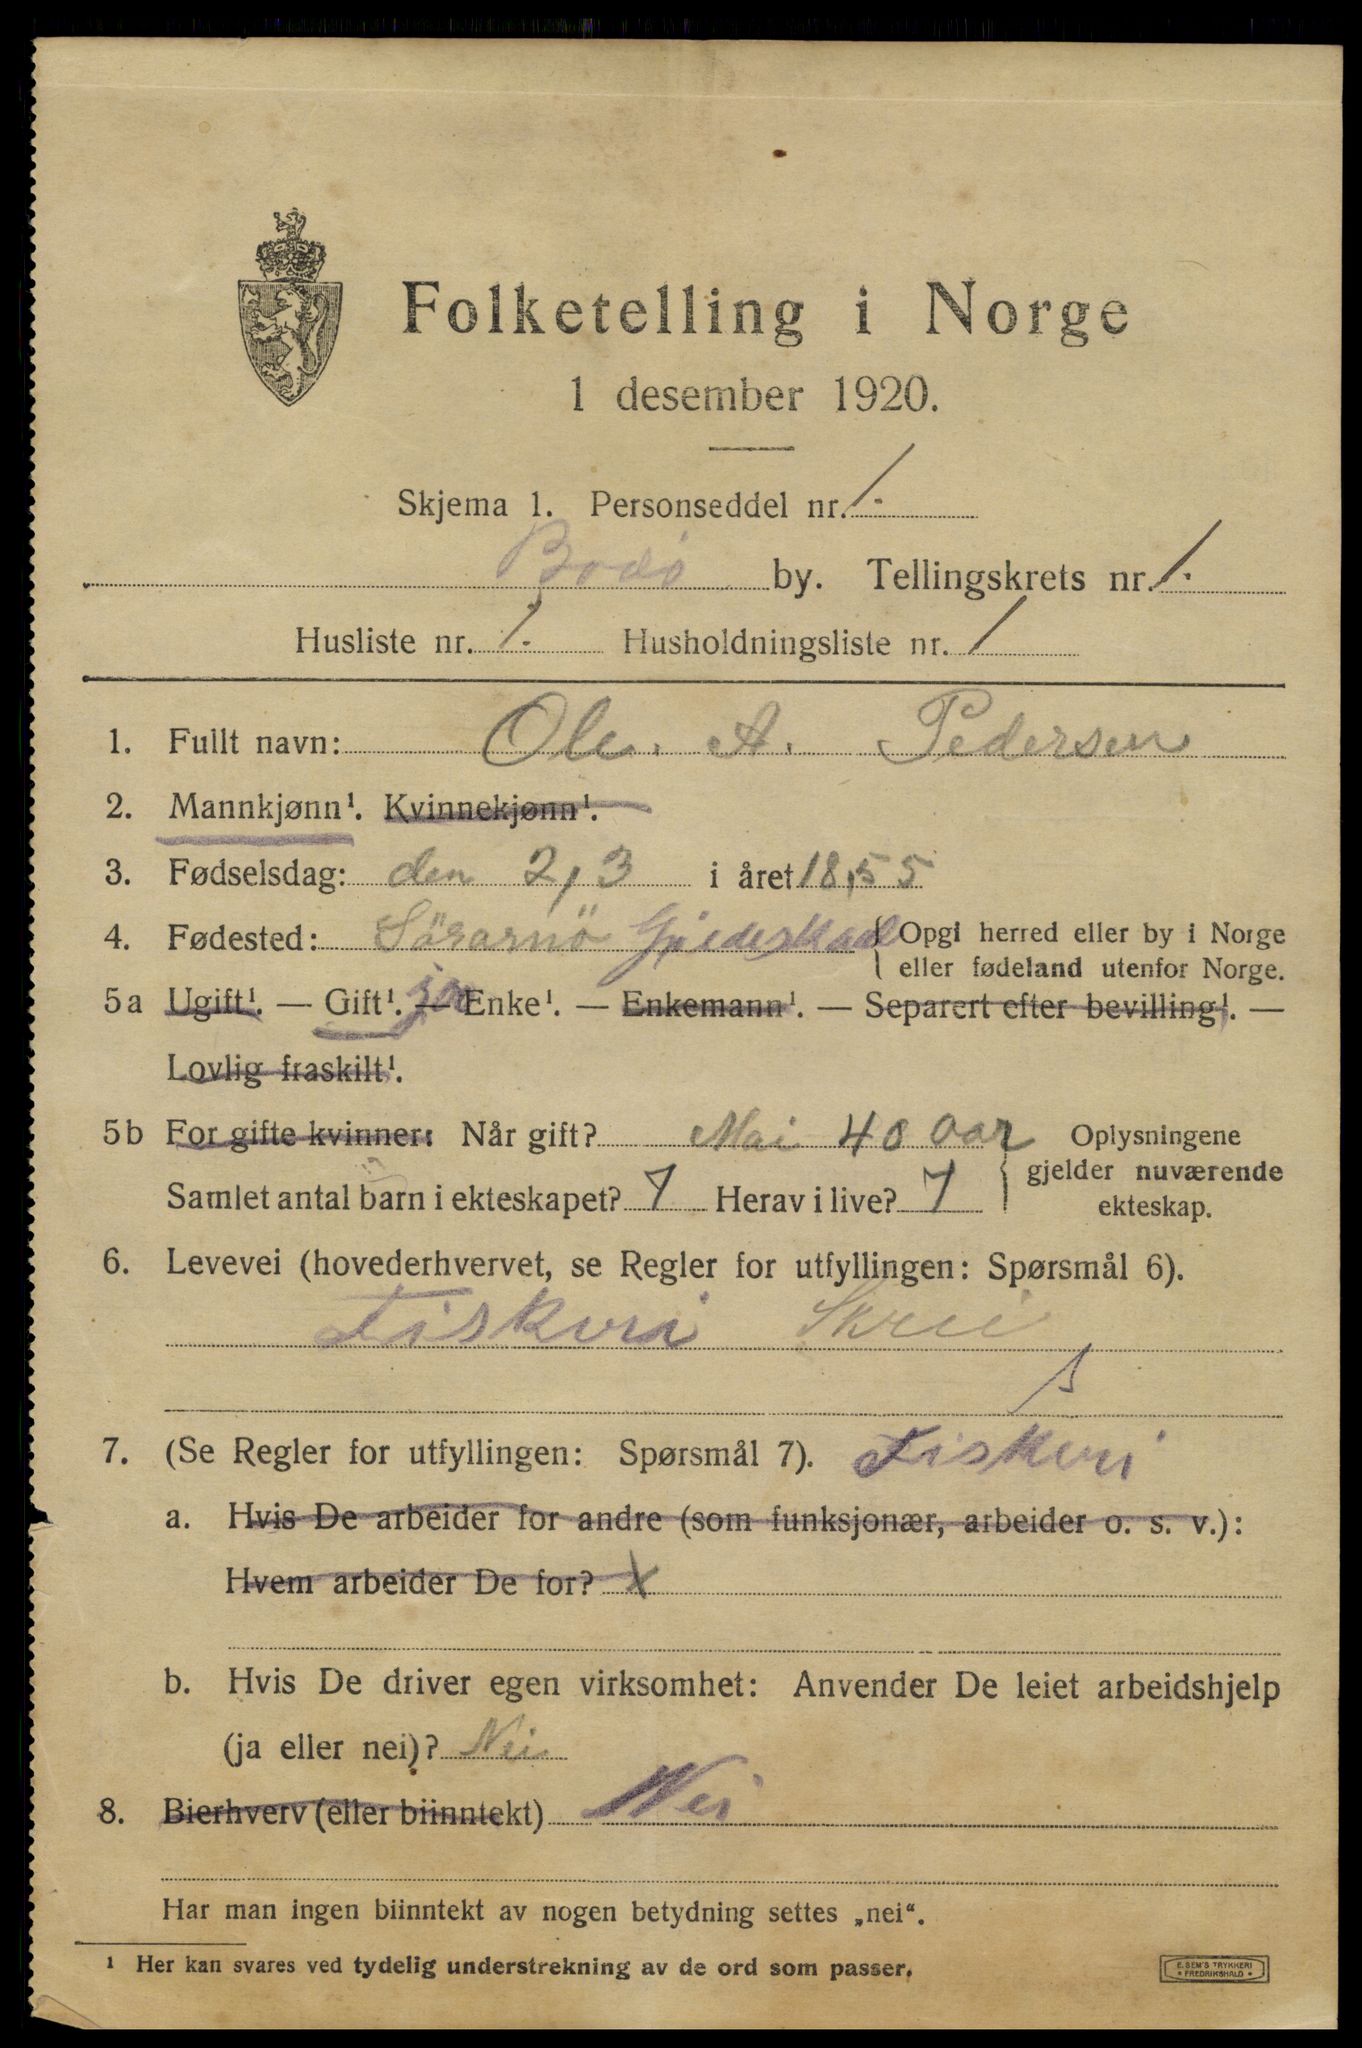 Folketelling i Norge
1 desember 1920.
Skjema 1. Personseddel nr. 1.
Bodø by. Tellingskrets nr. 1.
Husliste nr. 1. Husholdningsliste nr. 1
1. Fullt navn: Ole. A. Pedersen
2. Mannkjønn¹. Kvinnekjønn¹.
3. Fødselsdag: den 2,3 i året 18,55
4. Fødested: Sörarnö Gjideskaal { Opgi herred eller by i Norge
eller fødeland utenfor Norge.
5a Ugift¹. — Gift¹. ja — Enke¹. — Enkemann¹. — Separert efter bevilling¹. —
Lovlig fraskilt¹.
5b For gifte kvinner: Når gift? Mai 40 aar { Oplysningene
gjelder nuværende
ekteskap.
Samlet antal barn i ekteskapet? 7 Herav i live? 7
6. Levevei (hovederhvervet, se Regler for utfyllingen: Spørsmål 6).
Fiskeri Skrei
s
7. (Se Regler for utfyllingen: Spørsmål 7). Fiskeri
a. Hvis De arbeider for andre (som funksjonær, arbeider o. s. v.):
Hvem arbeider De for? X
b. Hvis De driver egen virksomhet: Anvender De leiet arbeidshjelp
(ja eller nei)? Nei
8. Bierhverv (eller biinntekt) Nei
Har man ingen biinntekt av nogen betydning settes „nei“.
¹ Her kan svares ved tydelig understrekning av de ord som passer.
E. SEM'S TRYKKERI
• FREDRIKSHALD •